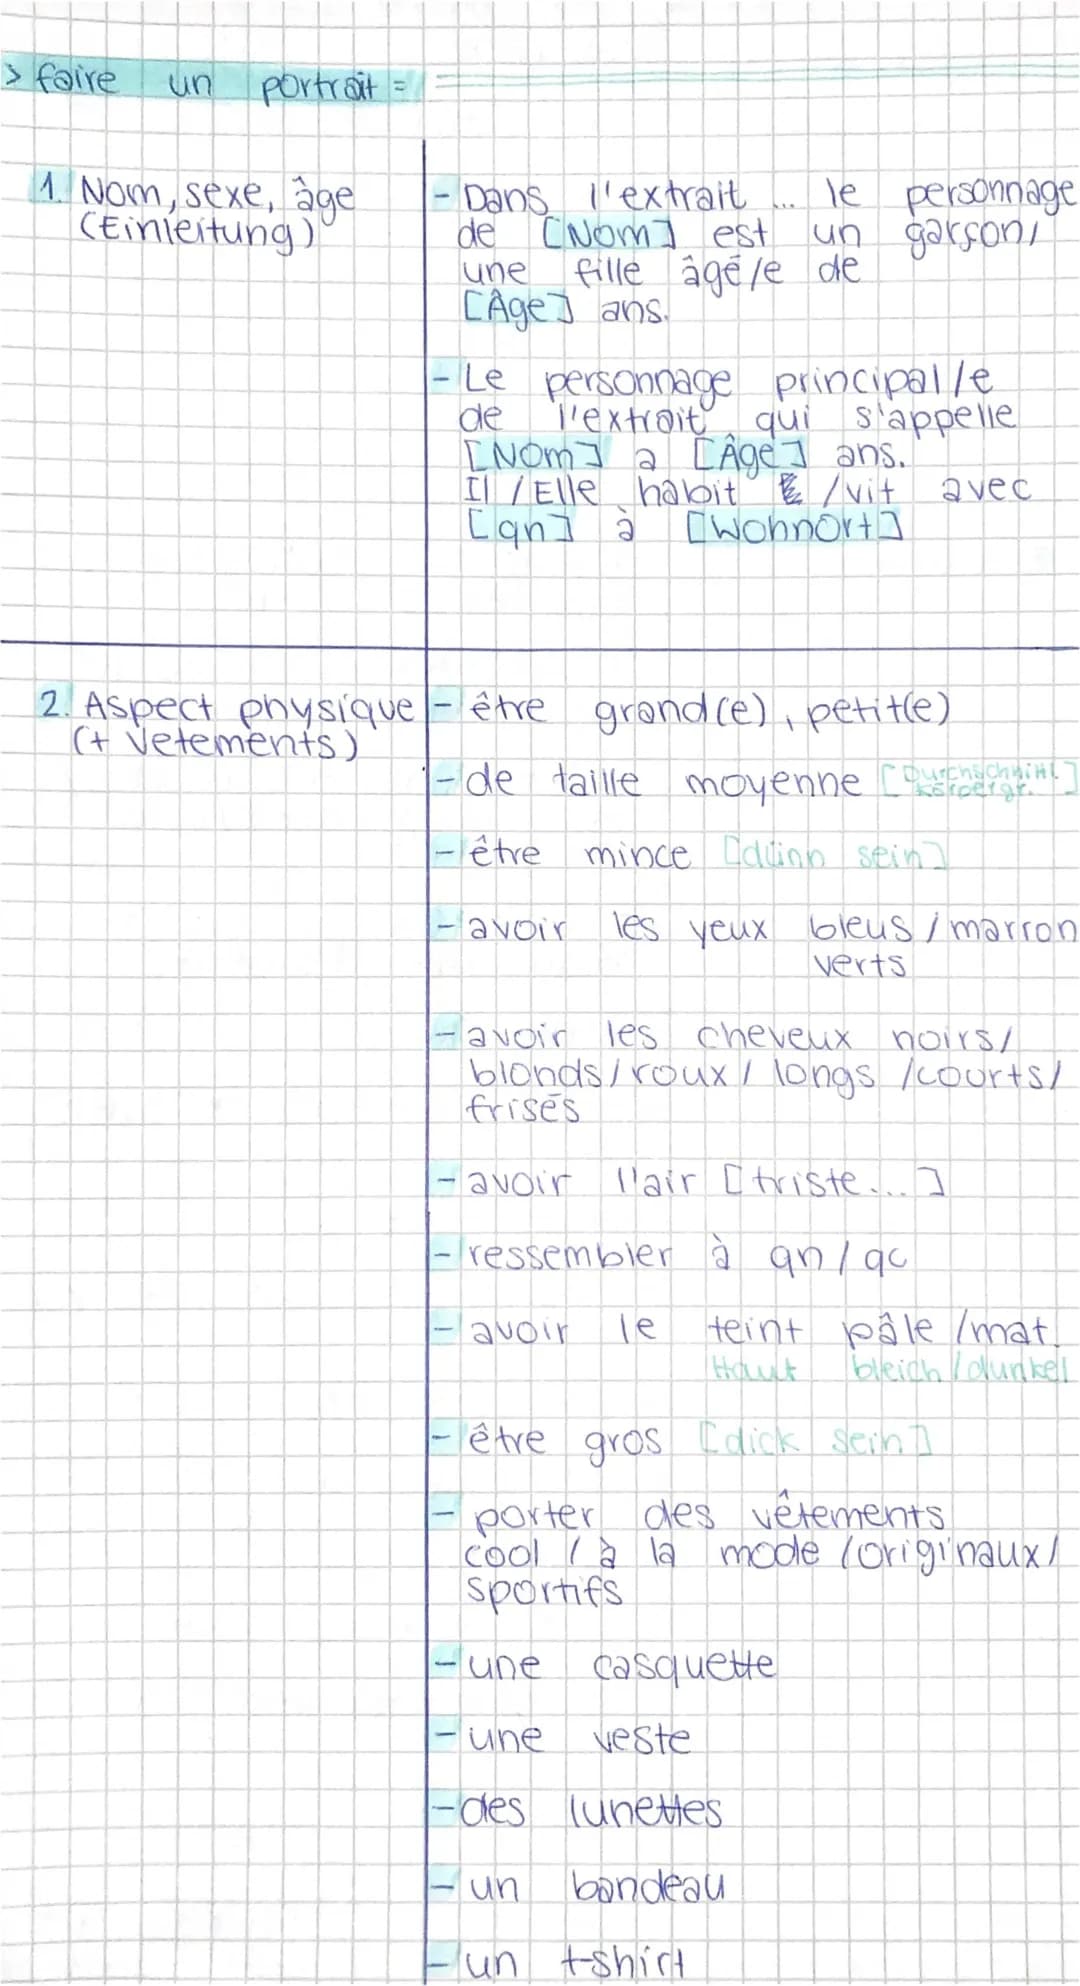 > faire un portrait =
1. Nom, sexe, âge
(Einleitung)
- Dans l'extrait ... le personnage
de [Nom] est un garçon,
une fille âgé/e de
[Âge] ans.
- Le personnage principal/e
de l'extrait qui s'appelle
[Nom] a [Âge] ans.
Il / Elle habit /vit avec
[qn] à [Wohnort]
2. Aspect physique
(+ Vetements)
- être grand(e), petit(e)
- de taille moyenne [Durchschnittl.
Körpergr.]
- être mince [dünn sein]
- avoir les yeux bleus / marron
verts
- avoir les cheveux noirs/
blonds/roux/ longs /courts/
frisés
- avoir l'air [triste...]
- ressembler à qn/qc
- avoir le teint pâle /mat.
Haut bleich/dunkel
- être gros [dick sein]
- porter des vêtements
cool / à la mode /originaux/
sportifs
- une casquette
- une veste
- des lunettes
- un bandeau
- un t-shirt